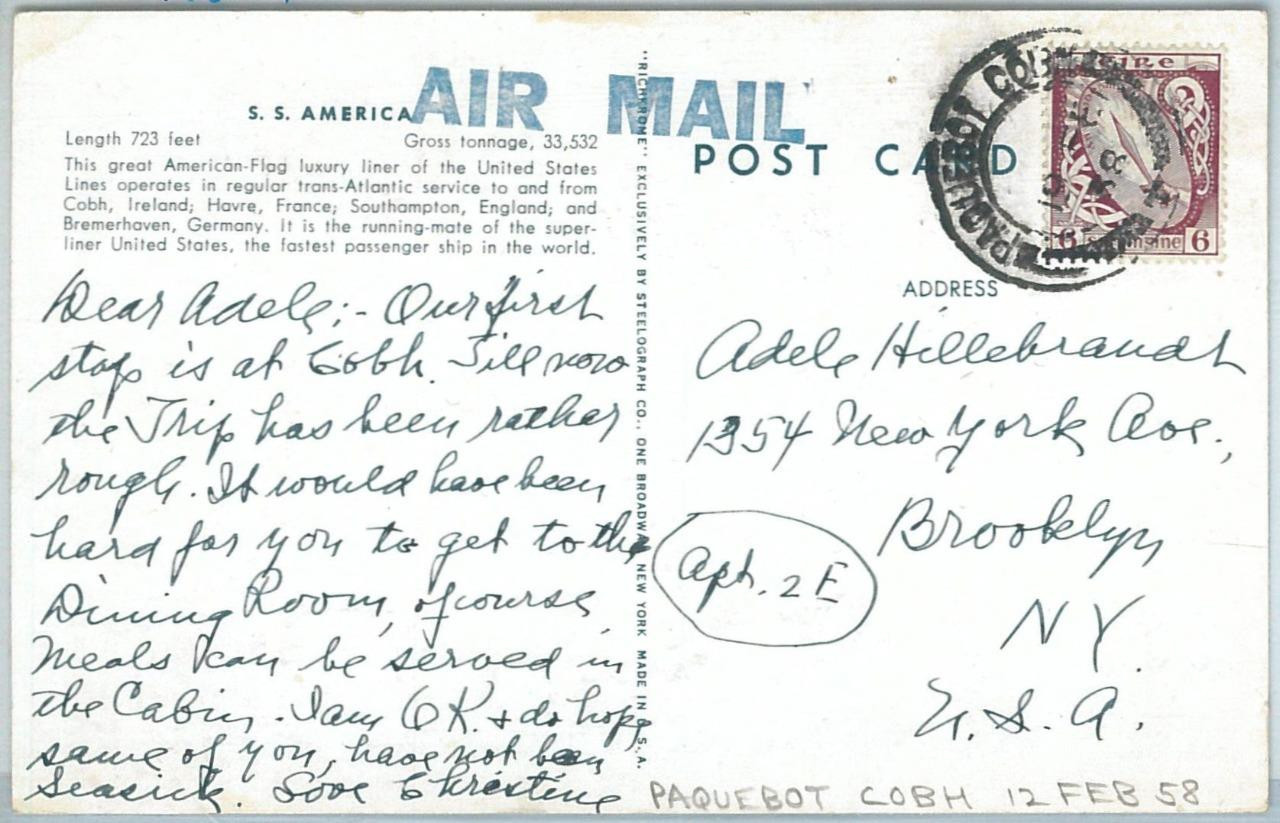 S. S. AMERICA
Length 723 feet Gross tonnage, 33,532
This great American-Flag luxury liner of the United States
Lines operates in regular trans-Atlantic service to and from
Cobh, Ireland; Havre, France; Southampton, England; and
Bremerhaven, Germany. It is the running-mate of the super-
liner United States, the fastest passenger ship in the world.
Dear Adele;- Our first
stop is at Cobh. Till now
the Trip has been rather
rough. It would have been
hard for you to get to the
Dining Room, of course,
Meals can be served in
the Cabin. I am OK. & do hope
same of you, have not been
seasick. Love Christine
"RICHKROME" EXCLUSIVELY BY STEELOGRAPH CO., ONE BROADWAY NEW YORK MADE IN U.S.A.
AIR MAIL
POST CARD
PAQUEBOT COBH
éire
6 6
ADDRESS
Adele Hillebrandt
1354 New York Ave.,
Brooklyn
Apt. 2E
NY.
U. S. A.
PAQUEBOT COBH 12 FEB 58